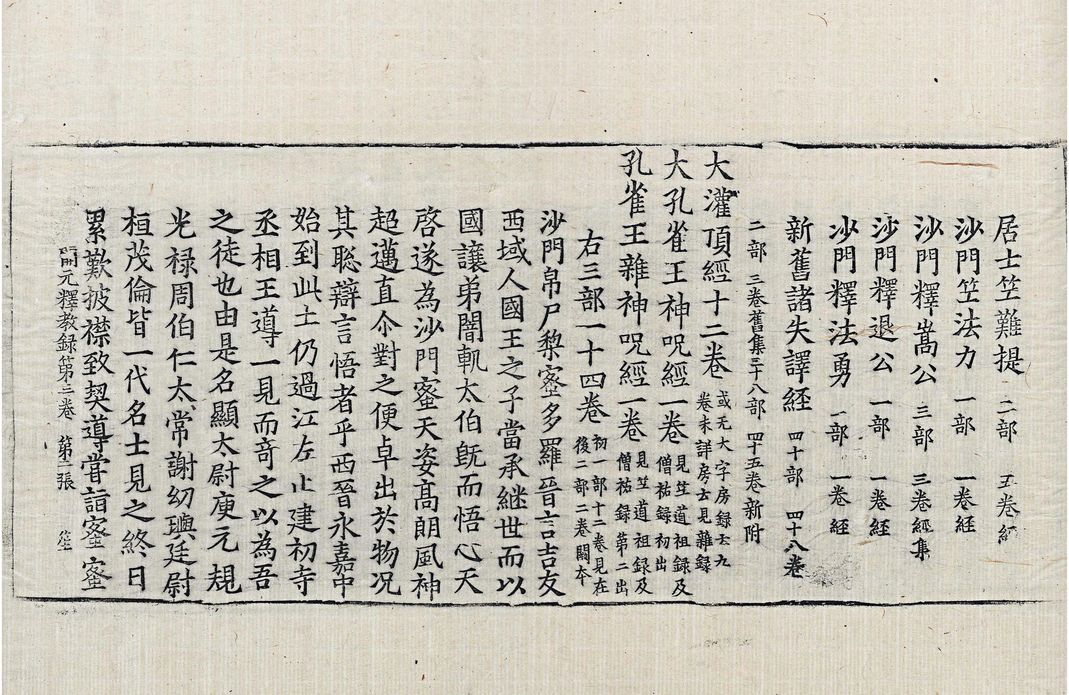 居士竺難提 二部 五卷經
沙門竺法力 一部 一卷経
沙門釋嵩公 三部 三卷經集
沙門釋退公 一部 一卷経
沙門釋法勇 一部 一卷経
新舊諸失譯経 四十部 四十八卷
二部 三卷舊集三十八部 四十五卷新附
大灌頂經十二卷 或无大字房録云九
卷未詳房云見雜録
大孔雀王神呪經一卷 見竺道祖録及
僧祐録初出
孔雀王雜神呪經一卷 見竺道祖録及
僧祐録第二出
右三部一十四卷 初一部十二卷見在
後二部二卷闕夲
沙門帛尸棃蜜多羅晉言吉友
西域人國王之子當承継世而以
國讓弟闇軌太伯旣而悟心天
啓遂為沙門蜜天姿髙朗風神
超邁直尒對之便卓出於物況
其聡辯言悟者乎西晉永嘉中
始到此土仍過江左止建初寺
丞相王導一見而奇之以為吾
之徒也由是名顯太尉庾元䂓
光禄周伯仁太常謝幼輿廷尉
桓茂倫皆一代名士見之終日
累歎披襟致契導甞詣蜜蜜
開元釋教録第三卷 第二張 笙